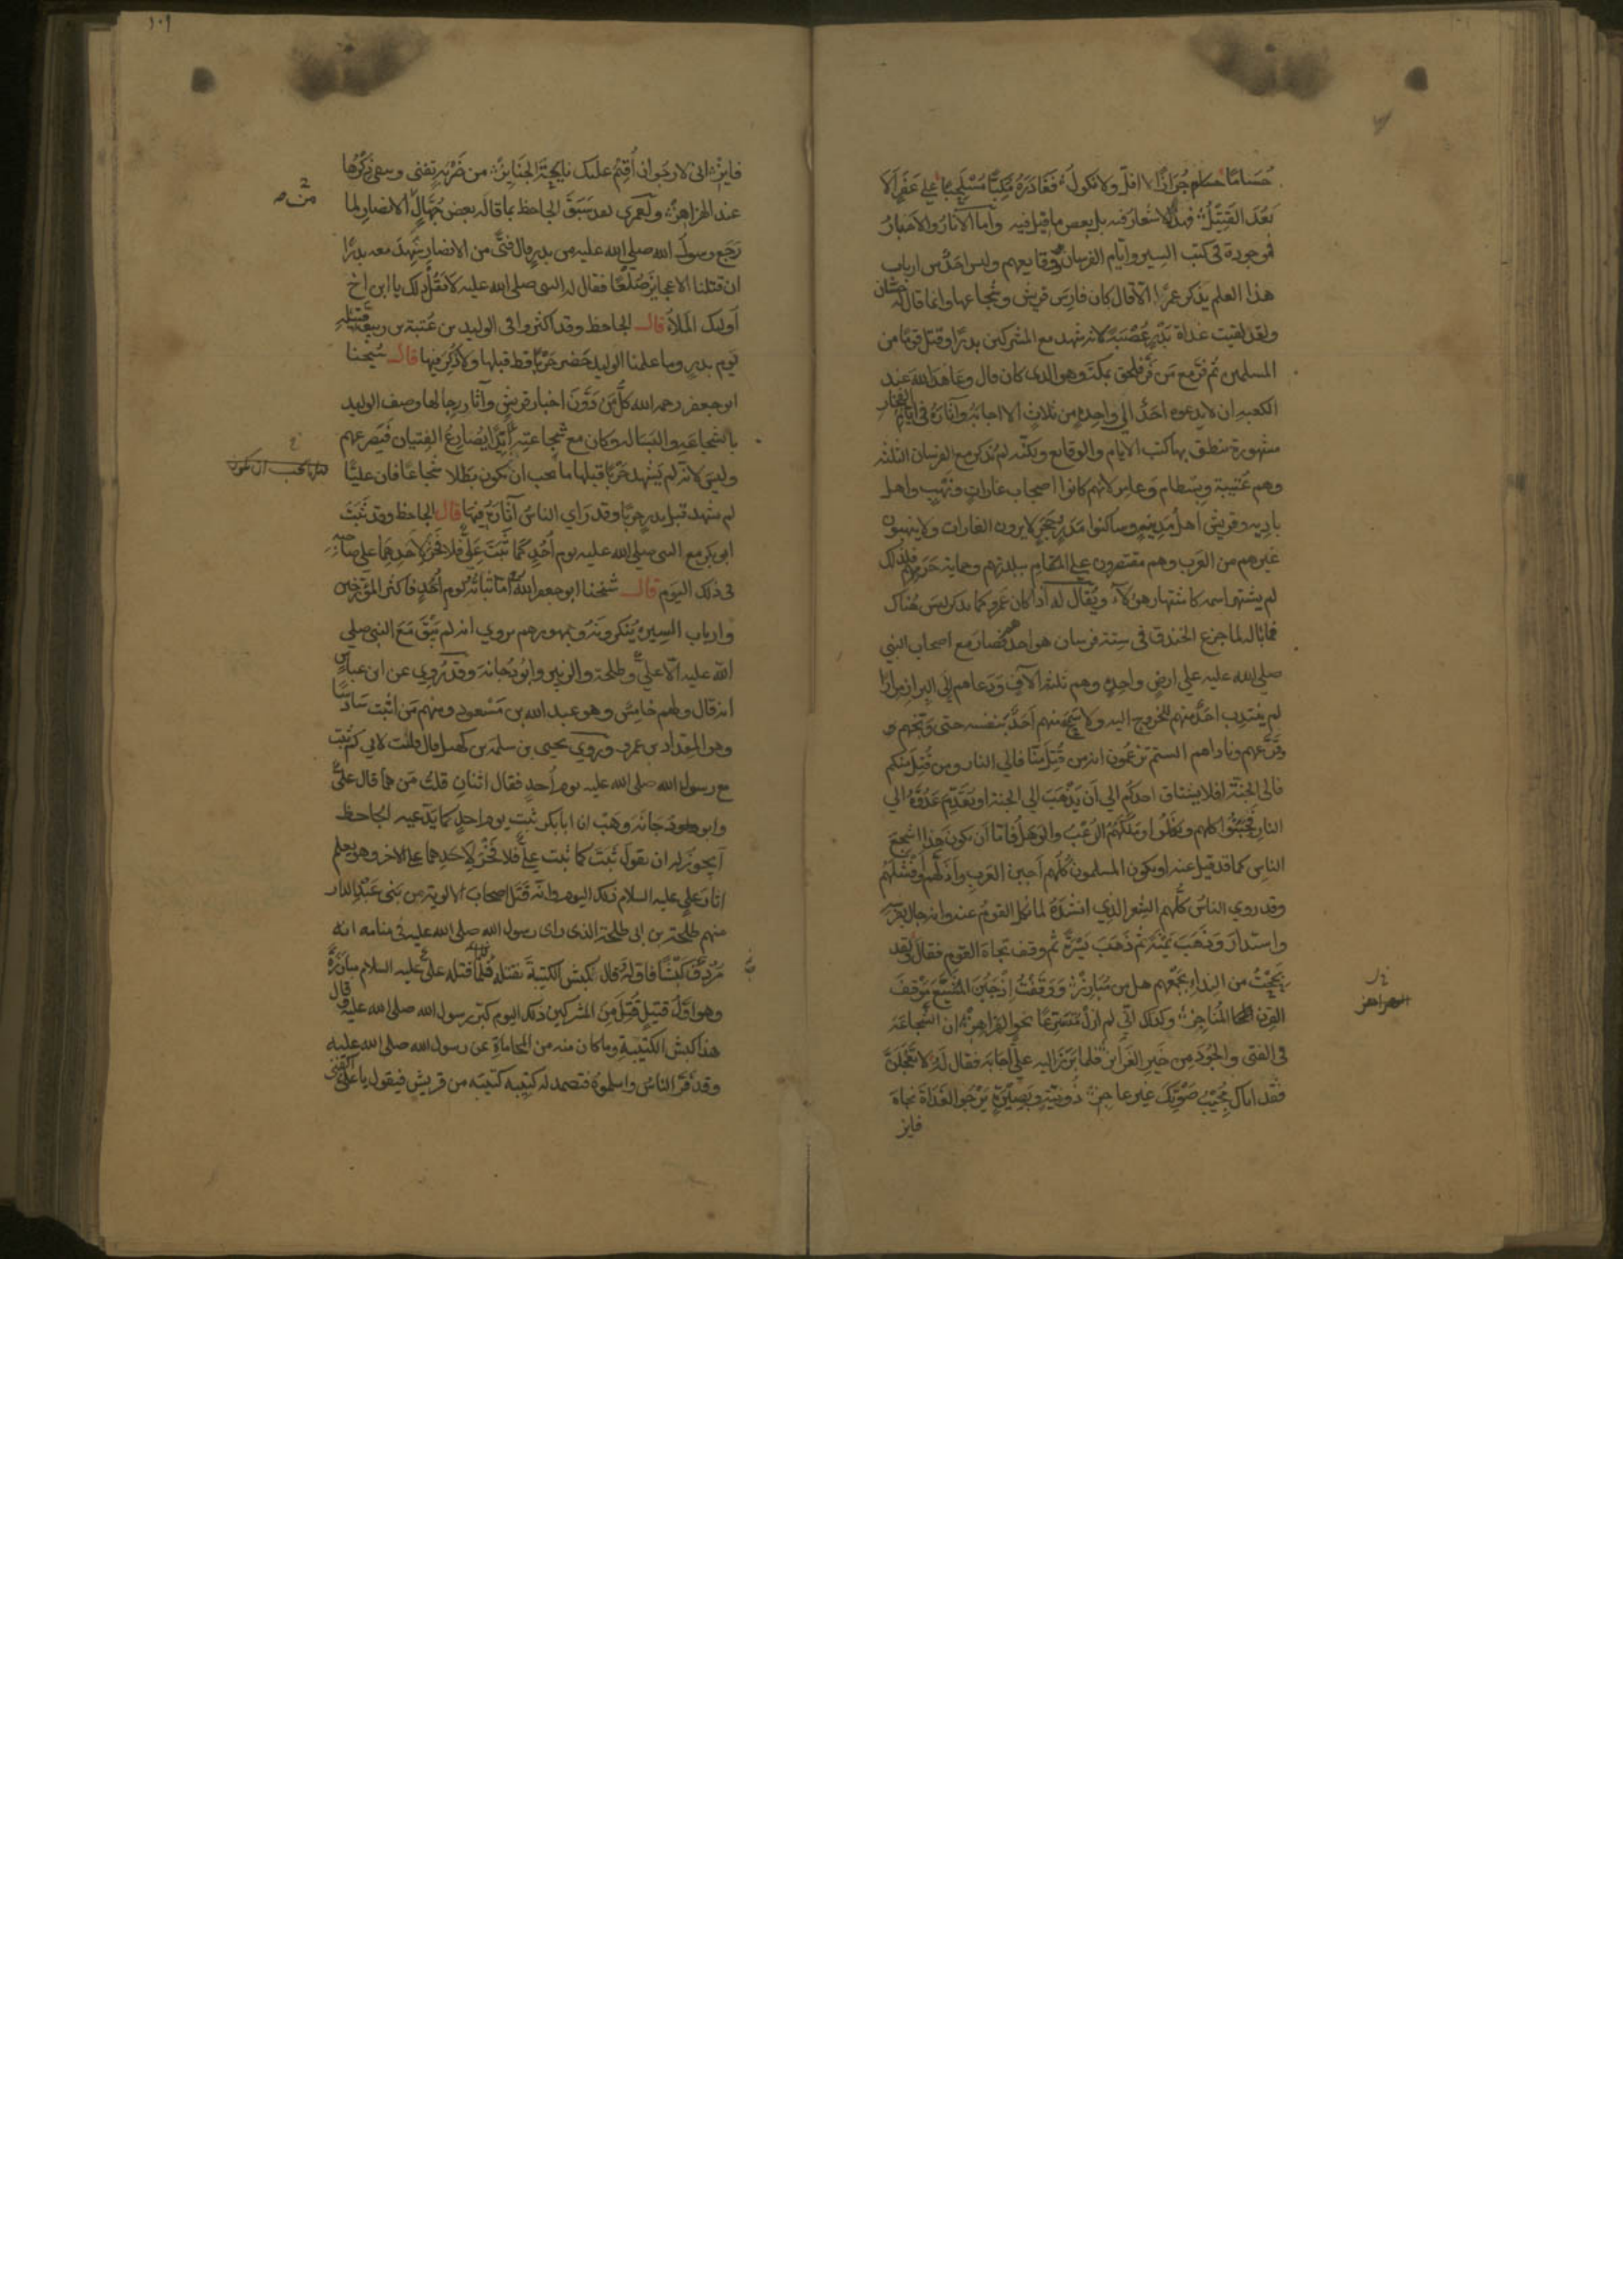 حُسَامًا جُرَازًا لا افلّ ولا نكول فَغَادَرَهُ مُكِبًّا مُسْلَحِبًّا علي عَفَرٍ الا
بَعُدَ القَتِيْلُ فهذه الاشعار فيه بل بعض ما قيل فيه واما الآثار والاخبار
فموجودة في كتب السير وايام الفرسان ووقايعهم وليس احدٌ من ارباب
هذا العلم يذكر عمرًا الّا قال كان فارس قريش وشجاعها وانما قال له حسّان
ولقد لقيت غداة بَدْرٍ عُصْبَةً لانه شهد مع المشركين بدرًا وقتل قومًا من
المسلمين ثم فرّ مع مَن فرّ فلحق بمكة وهو الذي كان قال وعاهد الله عند
الكعبه ان لا يدعوه احدٌ الي واحدةٍ من ثلاثٍ الا اجابه وآثاره في ايام الفجار
مشهورة تنطق بها كتب الايام والوقايع ولكنّه لم يُذكر مع الفرسان الثلثه
وهم عُتيبة وبسطام وعامر لانهم كانوا اصحاب غاراتٍ ونَهْبٍ واهل
باديه وقريش اهلُ مدينةٍ وساكنوا مدرٍ وحَجَرٍ لا يرون الغارات ولا ينهبون
غيرهم من العَرب وهم مقتصرون علي المقام ببلدتهم وحماية حَرَمِهِم فلذلك
لم يشتهر اسمه كاشتهار هؤلآء ويُقال له اذا كان عَمرو كما تذكر ليسَ هُناك
فما باله لما جزع الخندق في ستة فرسان هو احدهم فصار مع اصحاب النبي
صلي الله عليه علي ارضٍ واحدةٍ وهم ثلثة آلآفٍ ودَعاهم الي البراز مرارًا
لم ينتدب احَدٌ منهم للخروج اليه ولا سمح منهم احَدٌ بنفسه حتى وبّخهم و
قرّعهم وناداهم الستم تزعمون انه من قُتِلَ منّا فالي النار ومن قُتِلَ منكم
فالى الجنة افلا يشتاق احدكم الي اَن يَذْهَبَ الي الجنة او يُقَدِّمَ عَدُوَّهُ الي
النار فجَبُنُوا كلهم ونَكَلُوا ومَلَكَهُمُ الرُعْبُ والوَهَلُ فامّا اَن يكون هذا اشجعَ
الناس كما قد قيل عنه او يكون المسلمون كُلّهم اَجبن العَرَبِ واَذَلَّهم وافشلَهُم
وقد روي الناسُ كلُّهم الشِعر الذي انشَدَهُ لما نكل القومُ عنه وانه جال بفرسه
واستدارَ وذَهَبَ يَمْنَةً ثم ذَهَبَ يَسْرَةً ثم وقف تجاه القوم فقال لقد
بُحِحْتُ من النداءِ بجَمْعِهم هل من مُبَارِزْ ووَقَفْتُ اِذ جَبُنَ المُشَيَّعُ مَوْقِفَ
القِرن المُناجِزْ وكذلك انّي لم ازل مُتَسَرِّعًا نحو الهزاهِزْ ان الشجاعَة
في الفتى والجُودَ من خير الغرائز فلما بَرَزَ اليه عليٌّ اجابه فقال له لا تَعْجَلَنَّ
فقد اتاك مُجِيْبُ صَوْتِكَ غير عاجِزْ ذُو نيّةٍ وبَصِيْرَةٍ يَرْجُو الغَدَاةَ نجاة
فايز
الهزاهز
١٠٩
فايزْ انى لارجو ان اُقيمَ علَيك نايحَةَ الجَنَايزْ من ضَرْبَةٍ تفنى ويبقى ذِكْرُها
عند الهزاهزْ ولَعمرى لقد سَبَقَ الجاحظ بما قاله بعض جُهّالِ الانصارِ لما
رَجَع رسولُ الله صلي الله عليه من بدرٍ قال فتًى من الانصارِ شهد معه بدرًا
ان قتلنا الا عجايز صُلْعًا فقال له النبي صلى الله عليه لا تقُل ذلك يا ابن اخ
اولئك الملأُ قال الجاحظ وقد اكثروا في الوليد بن عُتبة بن ربيعة قتيله
يوم بدرٍ وما علمنا الوليد حَضر حَرْبًا قط قبلها ولا ذُكِرَ فيها قال شيخنا
ابو جعفر رحمه الله كلُّ من دَوَّنَ اخبار قريشٍ وآثار رجالها وصف الوليد
بالشجاعَةِ والبَسالة وكان مع شجاعتِهِ اَيِّدًا يُصَارِعُ الفِتيان فيَصرعهم
وليسَ لانّه لم يَشهد حَرْبًا قبلها ما يجب ان يكون بَطَلا شجاعًا فان عليًّا
لم يشهد قبل بدرٍ حربًا وقد رَاي الناسُ آثارَهُ فيها قال الجاحظ وقد ثَبَتَ
ابو بكر مع النبي صلي الله عليه يوم اُحُدٍ كما ثبَتَ عليٌّ فلا فخرَ لاحدهما علي صاحبه
في ذلك اليوم قال شيخنا ابو جعفر رحمه الله اَمّا ثباتُه يوم اُحُدٍ فاكثر المؤرخين
وارباب السِيَرِ يُنكرونه وجمهورهم يروي انه لم يَبْقَ مَعَ النبي صلي
الله عليه الّا عليٌّ وطلحة والزبير وابو دُجانة وقد رُوِي عن ابن عباسٍ
انه قال ولهم خامِسٌ وهو عبد الله بن مَسْعودٍ ومنهم مَن اثبت سَادسًا
وهو المِقداد بن عمرٍو ورَوي يحيى بن سلمة بن كهيل قال قلت لابي كم ثبت
مع رسول الله صلى الله عليه يوم اُحدٍ فقال اثنانِ قلتُ مَن هما قال عليٌّ
وابو دُجَانَة وهَبْ ان ابابكر ثبت يوم احدٍ كما يَدّعيه الجاحظ
اَيجوز له ان يقول ثَبَتَ كما ثبت علي فلا فخرَ لاحَدِهما علي الاخر وهو يعلم
اثارَ علي عليه السلام ذلك اليوم وانّه قَتَلَ اصحاب الالوية من بَنى عَبْدِ الدار
منهم طلحة بن ابي طلحة الذي راى رسول الله صلي الله عليه في منامه انه
مُرْدِفٌ كَبْشًا فاوّله وقال كبش الكتيبة نقتله فلمّا قتله علي عليه السلام مبارَزةً
وهو اوّلُ قتيلٍ قُتِلَ مِنَ المشركين ذلك اليوم كبّر رسول الله صلى الله عليه وقال
هذا كبش الكتيبةِ وما كان منه من المُحاماةِ عن رسول الله صلي الله عليه
وقد فَرَّ الناسُ واسلموهُ فتصمد له كتيبه كتيبه من قريش فيقول يا علي اكفنى